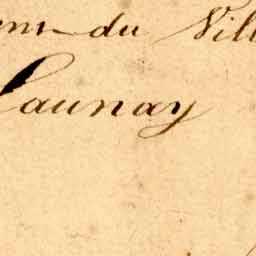 du Vill
Launay